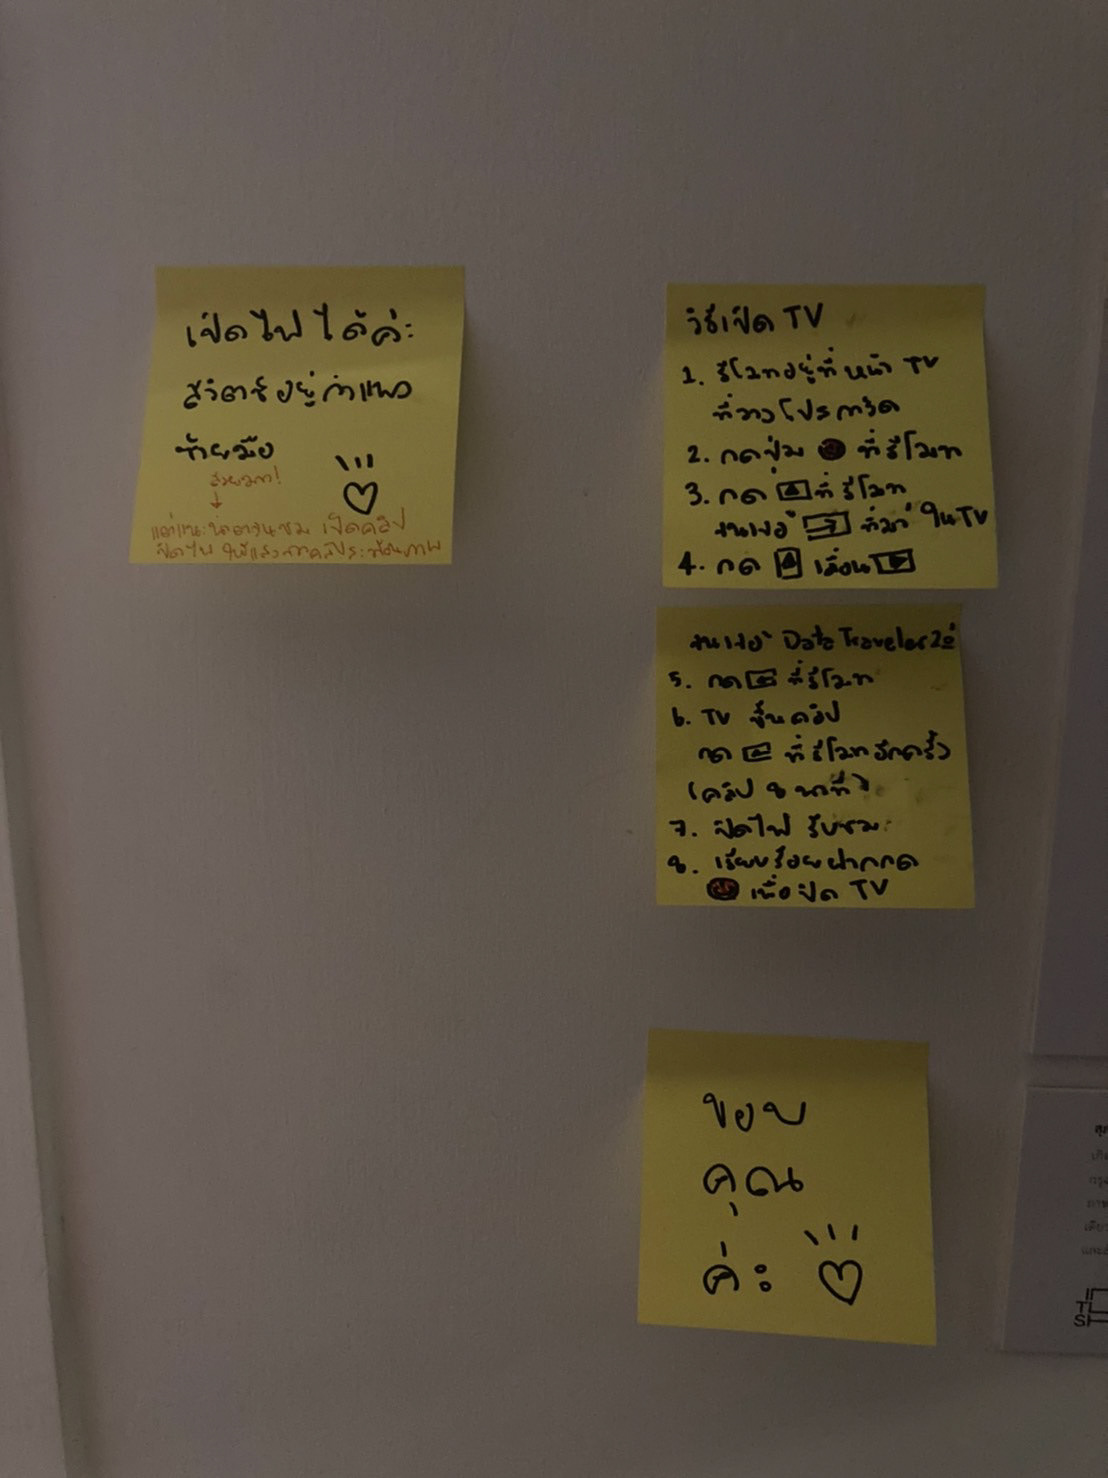 เปิดไฟได้ค่ะ
สวิตช์อยู่กำแพง
ซ้ายมือ
สวยมาก!
แต่แนะนำตอนชม เปิดคลิป
ปิดไฟ ให้แสงจากคลิป
วิธีเปิด TV
1. รีโมทอยู่ที่หน้า TV
ที่วางโปสการ์ด
2. กดปุ่ม ที่รีโมท
3. กด ที่รีโมท
จนเจอ "ที่มา" ใน TV
4. กด เลื่อน
จนเจอ Data Traveler 2.0
5. กด ที่รีโมท
6. TV ขึ้นคลิป
กด ที่รีโมทอีกครั้ง
(คลิป 8 นาที)
7. ปิดไฟ รับชม
8. เรียบร้อยฝากกด
เพื่อปิด TV
ขอบ
คุณ
ค่ะ